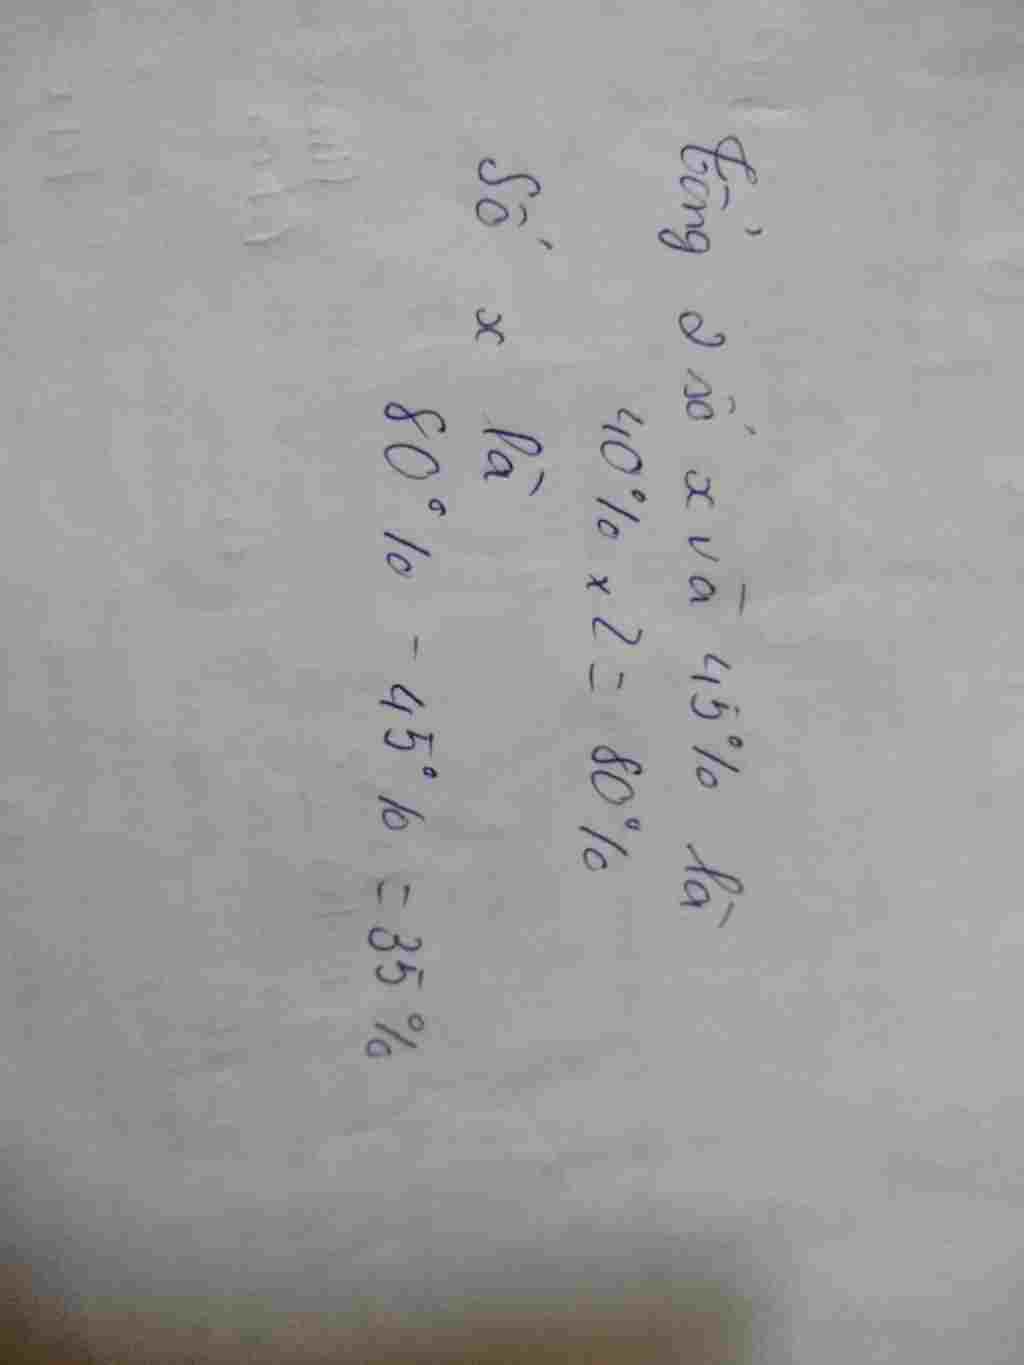 tổng 2 số x và 45% là
40% x 2 = 80%
Số x là
80% - 45% = 35%